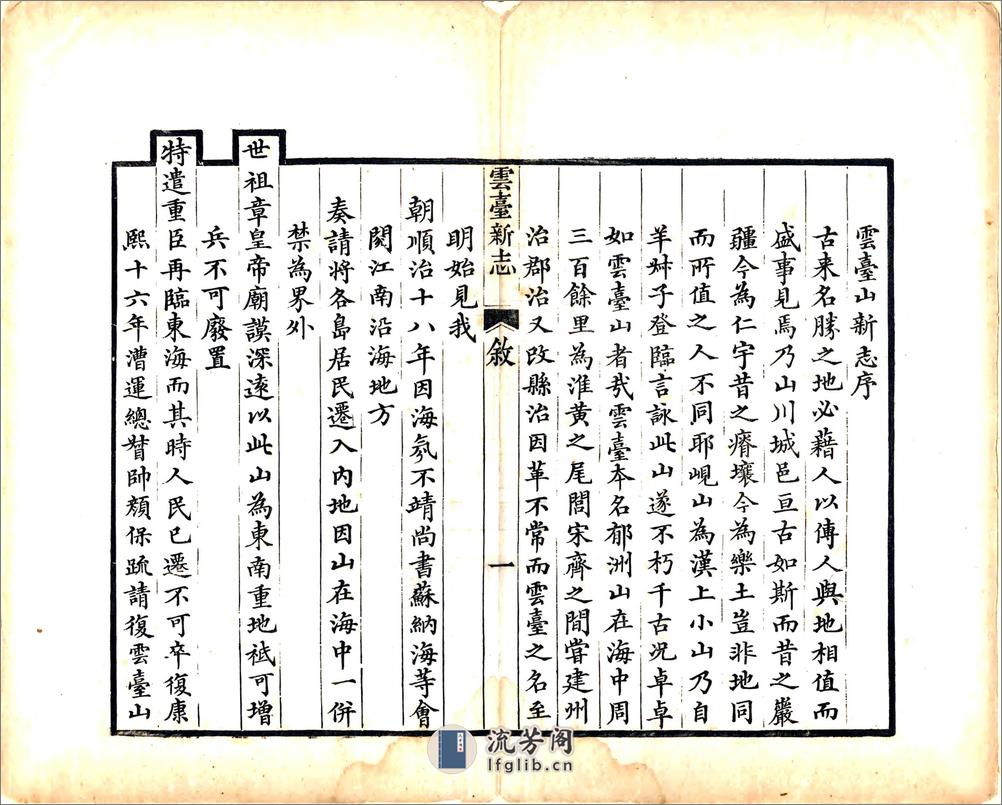 雲臺山新志序
古来名勝之地必藉人以傳人與地相值而
盛事見焉乃山川城邑亘古如斯而昔之巖
疆今為仁宇昔之瘠壤今為樂土豈非地同
而所值之人不同耶峴山為漢上小山乃自
羊叔子登臨言詠此山遂不朽千古况卓卓
如雲臺山者哉雲臺本名郁洲山在海中周
三百餘里為淮黄之尾閭宋齊之間嘗建州
治郡治又改縣治因革不常而雲臺之名至
雲臺新志 敘 一
明始見我
朝順治十八年因海氛不靖尚書蘇納海等會
閱江南沿海地方
奏請將各島居民遷入内地因山在海中一併
禁為界外
世祖章皇帝廟謨深遠以此山為東南重地祗可增
兵不可廢置
特遣重臣再臨東海而其時人民已遷不可卒復康
熙十六年漕運總督帥顏保疏請復雲臺山
流芳阁
lfglib.cn